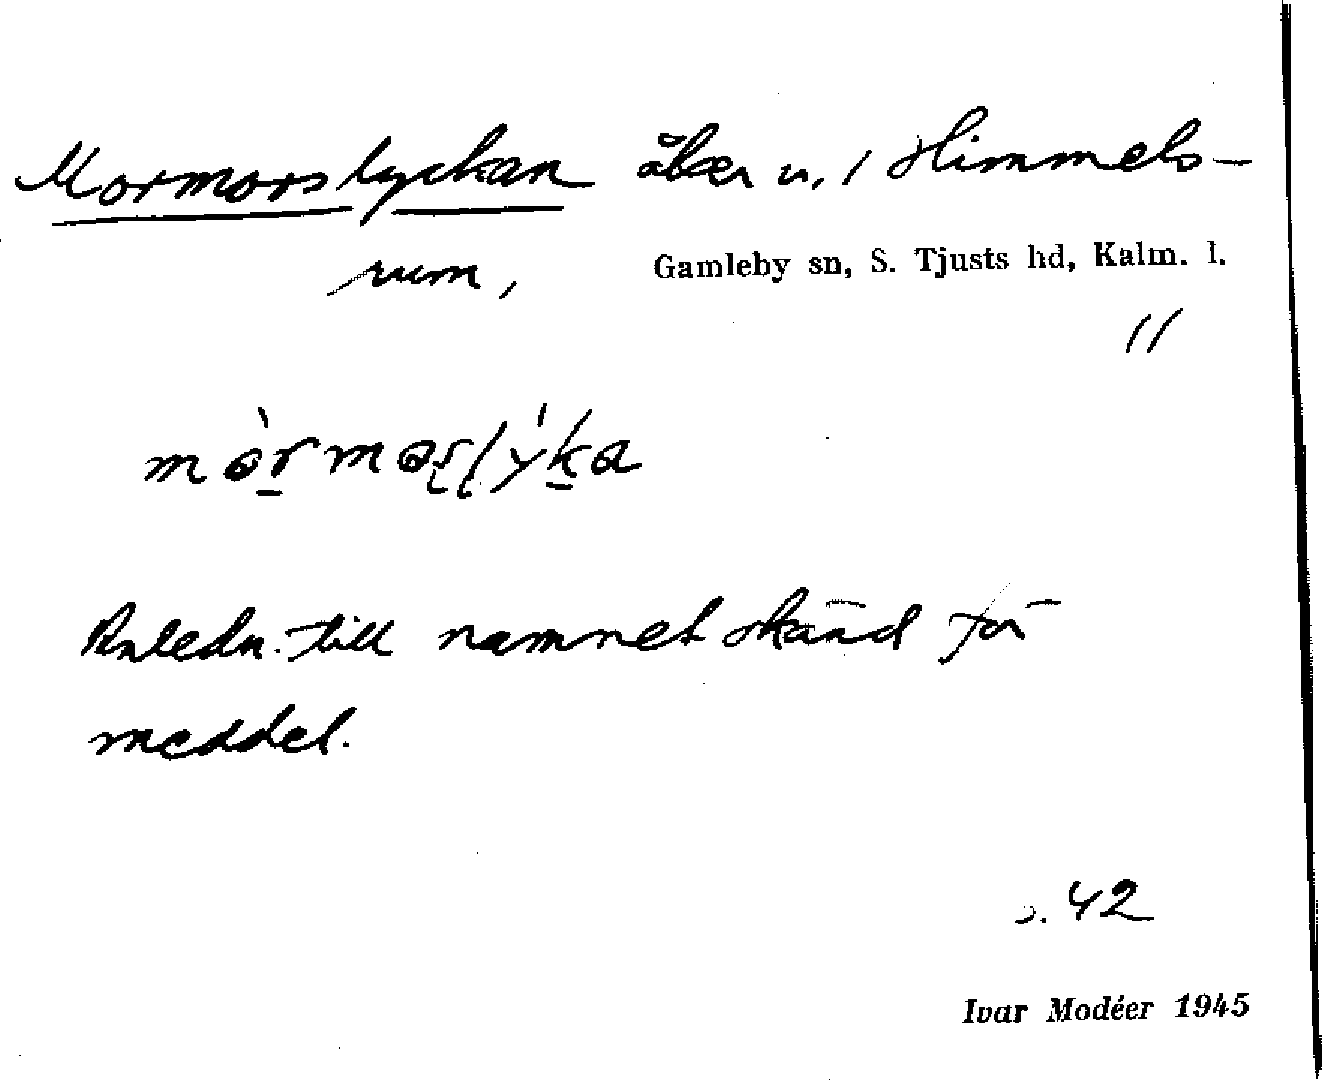 Mormorslyckan åker u. / Himmels-
rum,
Gamleby sn, S. Tjusts hd, Kalm. l.
//
Anledn. till namnet okänd för
meddel.
s. 42
Ivar Modéer 1945